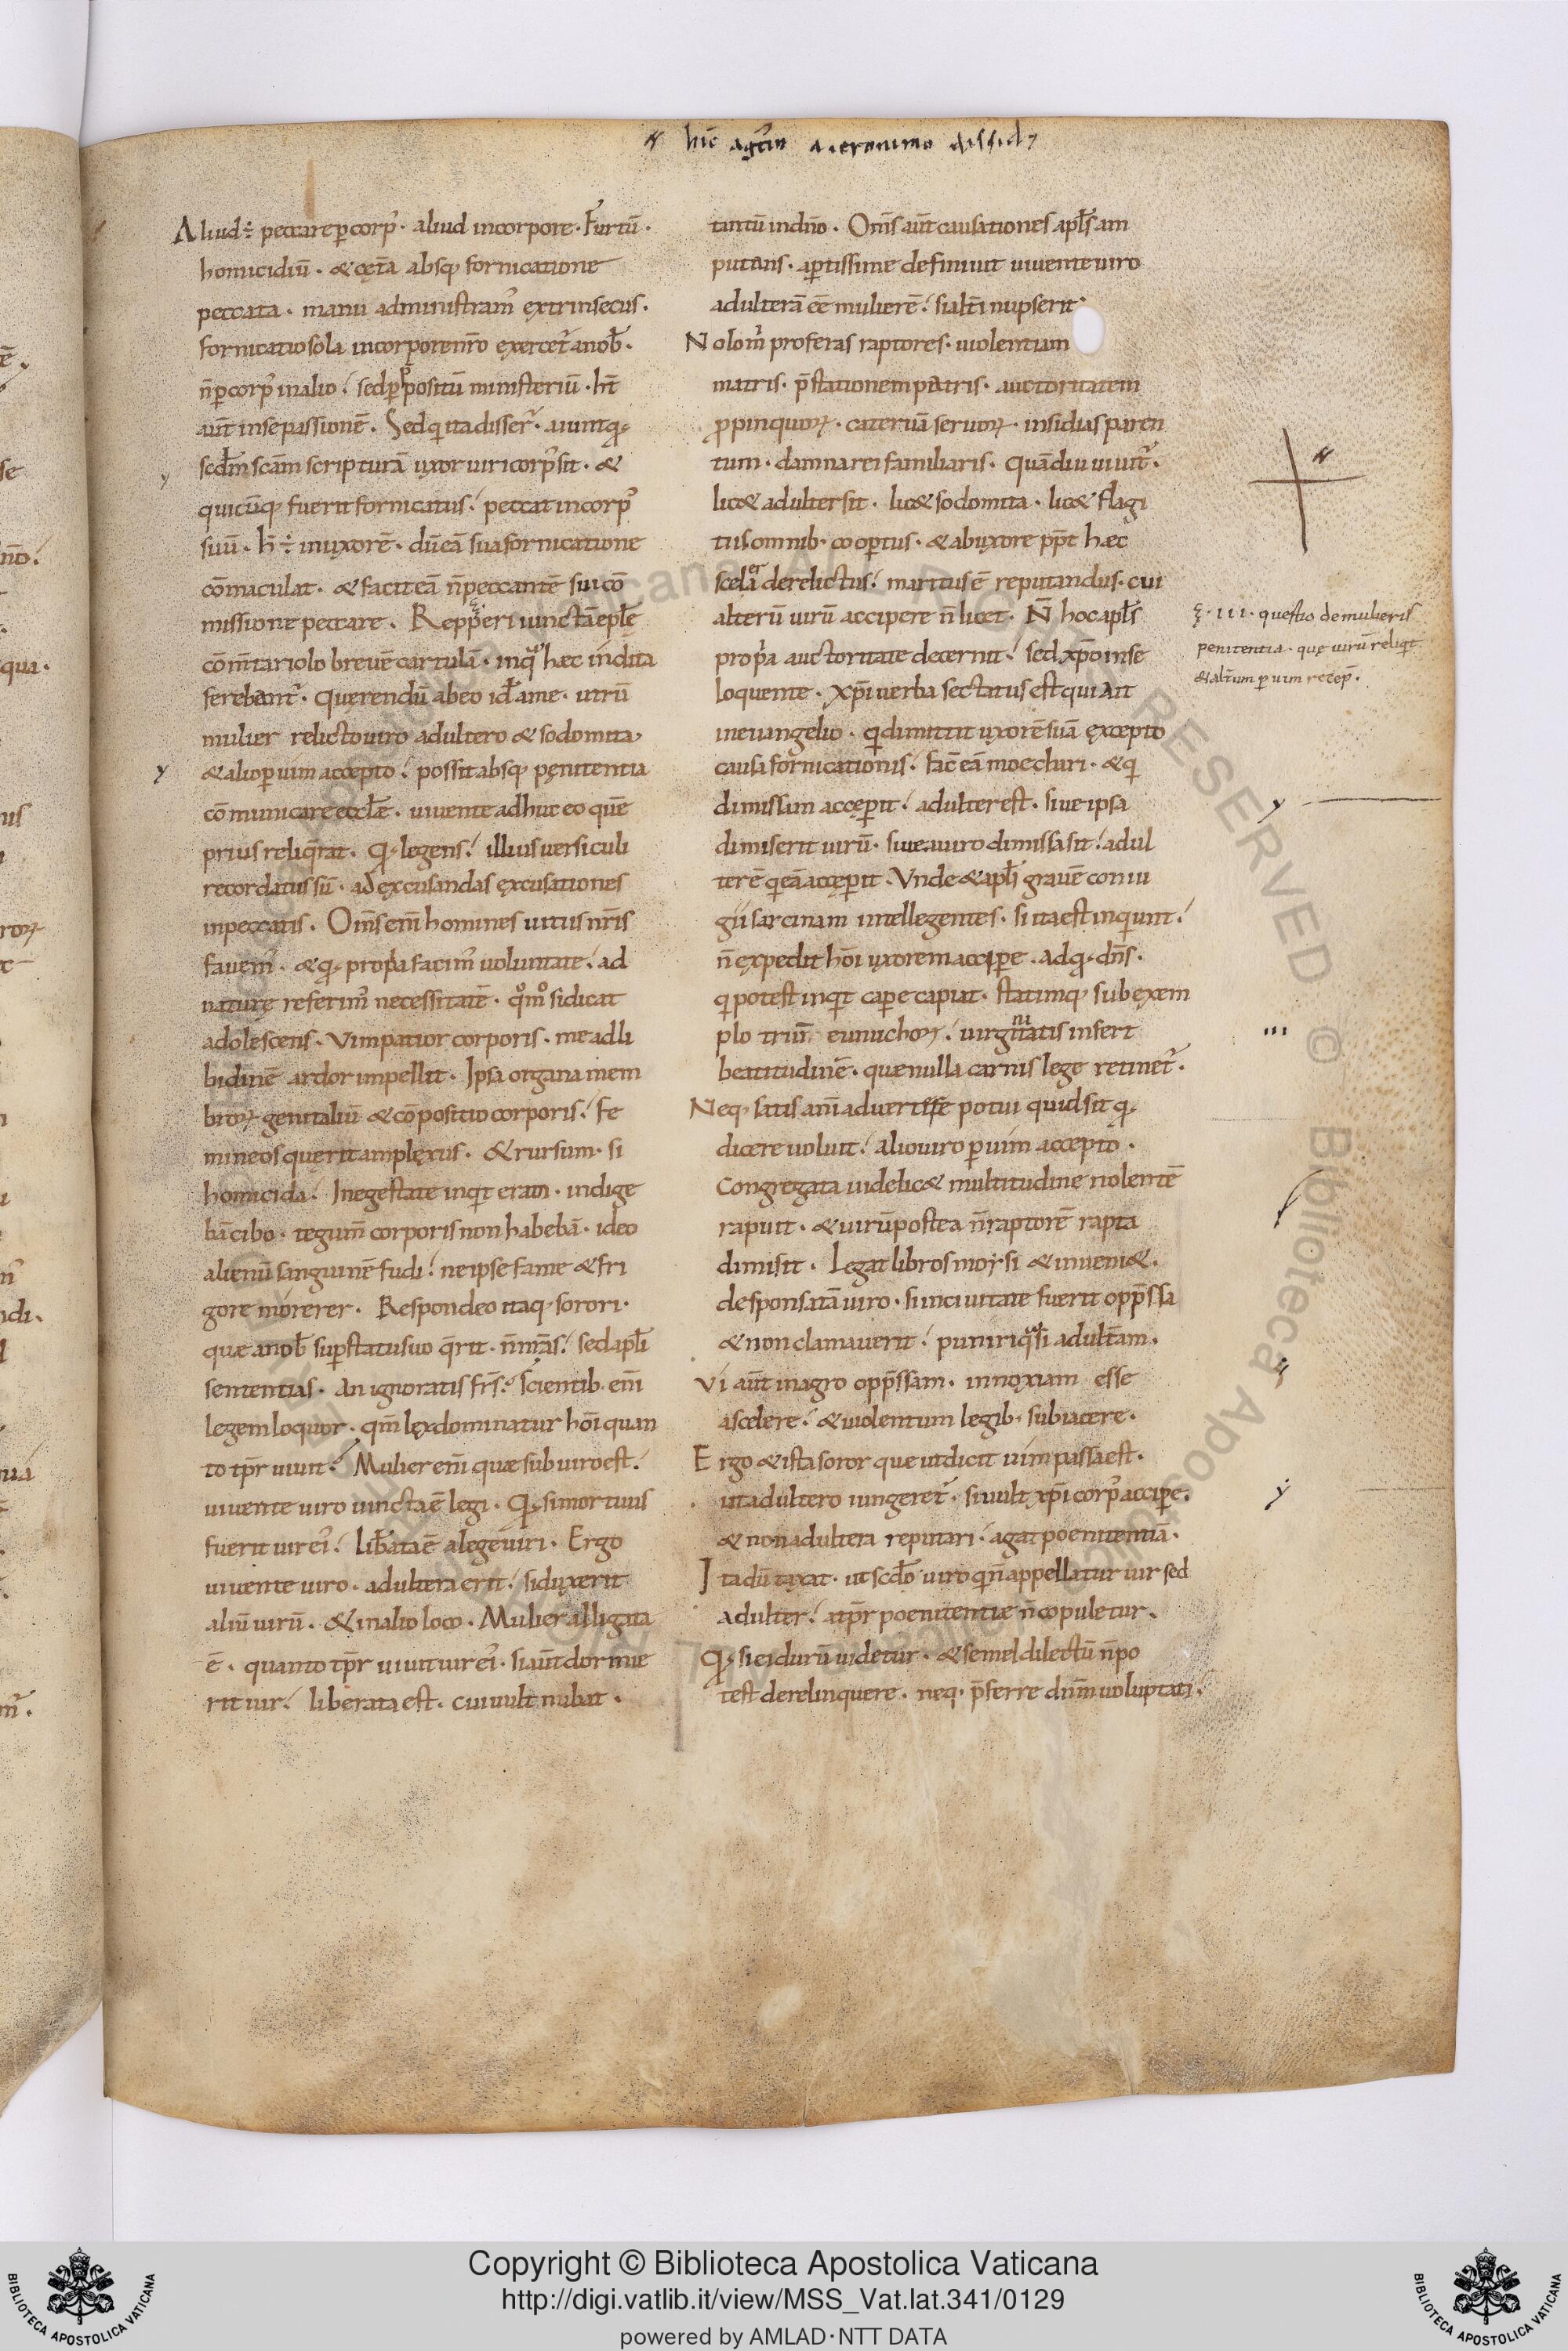 hic agtin a ieronimo dissid&
Aliud ÷ peccare p corp᾽· aliud incorpore· Furtū·
homicidiū· & cęt̄a absq; fornicatione
peccata· manu administram᾽ extrinsecus·
fornicatio sola incorpore nr̄o exercet᾽ anob̄·
n̄ p corp᾽ inalio! sed p ppositū ministeriū· ht̄
aut̄ inse passionē. Sed q ita disser᾽· aiunt q;
scdm̄ scam̄ scripturā uxor uiri corp᾽ sit· &
quicūq; fuerit fornicatus! peccat incorp᾽
suū· h̄ ÷ inuxorē· dū eā sua fornicatione
cōmaculat· & facit eā n̄ peccantē sui cō
missione peccare. Repperi iunctā eplę
cōm̄tariolo breuē cartulā· inqua hęc indita
ferebant᾽· Querendū abeo id̄ ame· utrū
mulier relicto uiro adultero & sodomita
& alio p uim accepto! possit absq; pęnitentia
cōmunicare ecclę· uiuente adhuc eo quē
prius reliq̄rat. Q; legens! illius uersiculi
recordatus sū· ad excusandas excusationes
inpeccatis. Om̄s em̄ homines uitiis nr̄is
fauem᾽· & q; propa facim᾽ uoluntate! ad
naturę referim᾽ necessitatē· qm̊o si dicat
adolescens. Vim patior corporis· me adli
bidinē ardor impellit. Ipsa organa mem
broꝝ genitaliū & cōpositio corporis! fe
mineos querit amplexus. & rursum· si
homicida! Inegestate inqt eram· indige
bā cibo· tegum̄ corporis non habebā· ideo
alienū sanguinē fudi! ne ipse fame & fri
gore morerer. Respondeo itaq; sorori·
quę anob̄ sup statu suo q̄rit· n̄ nr̄as! sed apl̄i
sententias. An ignoratis fr̄s! scientib· em̄
legem loquor· qm̄ lex dominatur hōi quan
to tpr uiuit! Mulier em̄ quę sub uiro est!
uiuente uiro uincta ē legi. Q; si mortuus
fuerit uir ei᾽! lib̄ata ē alege uiri. Ergo
uiuente uiro· adultera erit! si duxerit
aliū uirū. & inalio loco. Mulier alligata
ē· quanto tpr uiuit uir ei᾽· si aut̄ dormie
rit uir! liberata est. cui uult nubat·
tantū indn̄o. Om̄s aut̄ causationes apl̄s am
putans· aptissime definiuit uiuente uiro
adulterā eē mulierē! si alt̄i nupserit·
Nolo m̄ proferas raptores· uiolentiam
matris· p̄stationem patris· auctoritatem
ppinquoꝝ· cateruā seruoꝝ· insidias paren
tum· damna rei familiaris. Quādiu uiuit᾽·
lic& adulter sit· lic& sodomita· lic& flagi
tiis omnib· coopertus· & ab uxore pp̄t hęc
scelera derelictus! maritus ē reputandus· cui
alterū uirū accipere n̄ licet. N̄ hoc apl̄s
propa auctoritate decernit! sed xp̄o inse
loquente. Xp̄i uerba sectatus est qui ait
ineuangelio· q dimittit uxorē suā excepto
causa fornicationis! fac̄ eā moechari· & q
dimissam accęperit! adulter est. siue ipsa
dimiserit uirū· siue auiro dimissa sit! adul
ter ē q eā accęperit. Vnde & apl̄i grauē coniu
gii sarcinam intellegentes· si ita est inquiunt!
n̄ expedit hōi uxorem accipere. Ad q; dn̄s·
q potest inqt capere capiat· statimq; sub exem
plo triū eunuchoꝝ! uirginitatis insert
beatitudinē· quę nulla carnis lege retinet᾽·
Neq; satis aīaduertisse potui quid sit q;
dicere uoluit! alio uiro p uim accepto·
Congregata uidelic& multitudine nolentē
rapuit· & uirū postea n̄ raptorē rapta
dimisit. Legat libros moysi & inueni&·
desponsatā uiro· si in ciuitate fuerit opp̄ssa
& non clamauerit! puniri quasi adult̄am.
Vi aut̄ inagro opp̄ssam· innoxiam esse
ascelere! & uiolentum legib· subiacere·
Ergo & ista soror que ut dicit uim passa est·
ut adultero iungeret᾽· si uult xp̄i corp᾽ accipe·
& non adultera reputari! agat poenitentiā·
Ita dū taxat· ut scdō uiro q n̄ appellatur uir sed
adulter! atpr poenitentię n̄ copuletur.
Q; si ei durū uidetur· & semel dilectū n̄ po
test derelinquere· neq; p̄ferre dnm̄ uoluptati·
ę· III· questio de mulieris
penitentia· quę uirū reliqt
& alt̄um p uim recep̄·
Copyright © Biblioteca Apostolica Vaticana
http://digi.vatlib.it/view/MSS_Vat.lat.341/0129
powered by AMLAD·NTT DATA
BIBLIOTECA APOSTOLICA VATICANA
BIBLIOTECA APOSTOLICA VATICANA